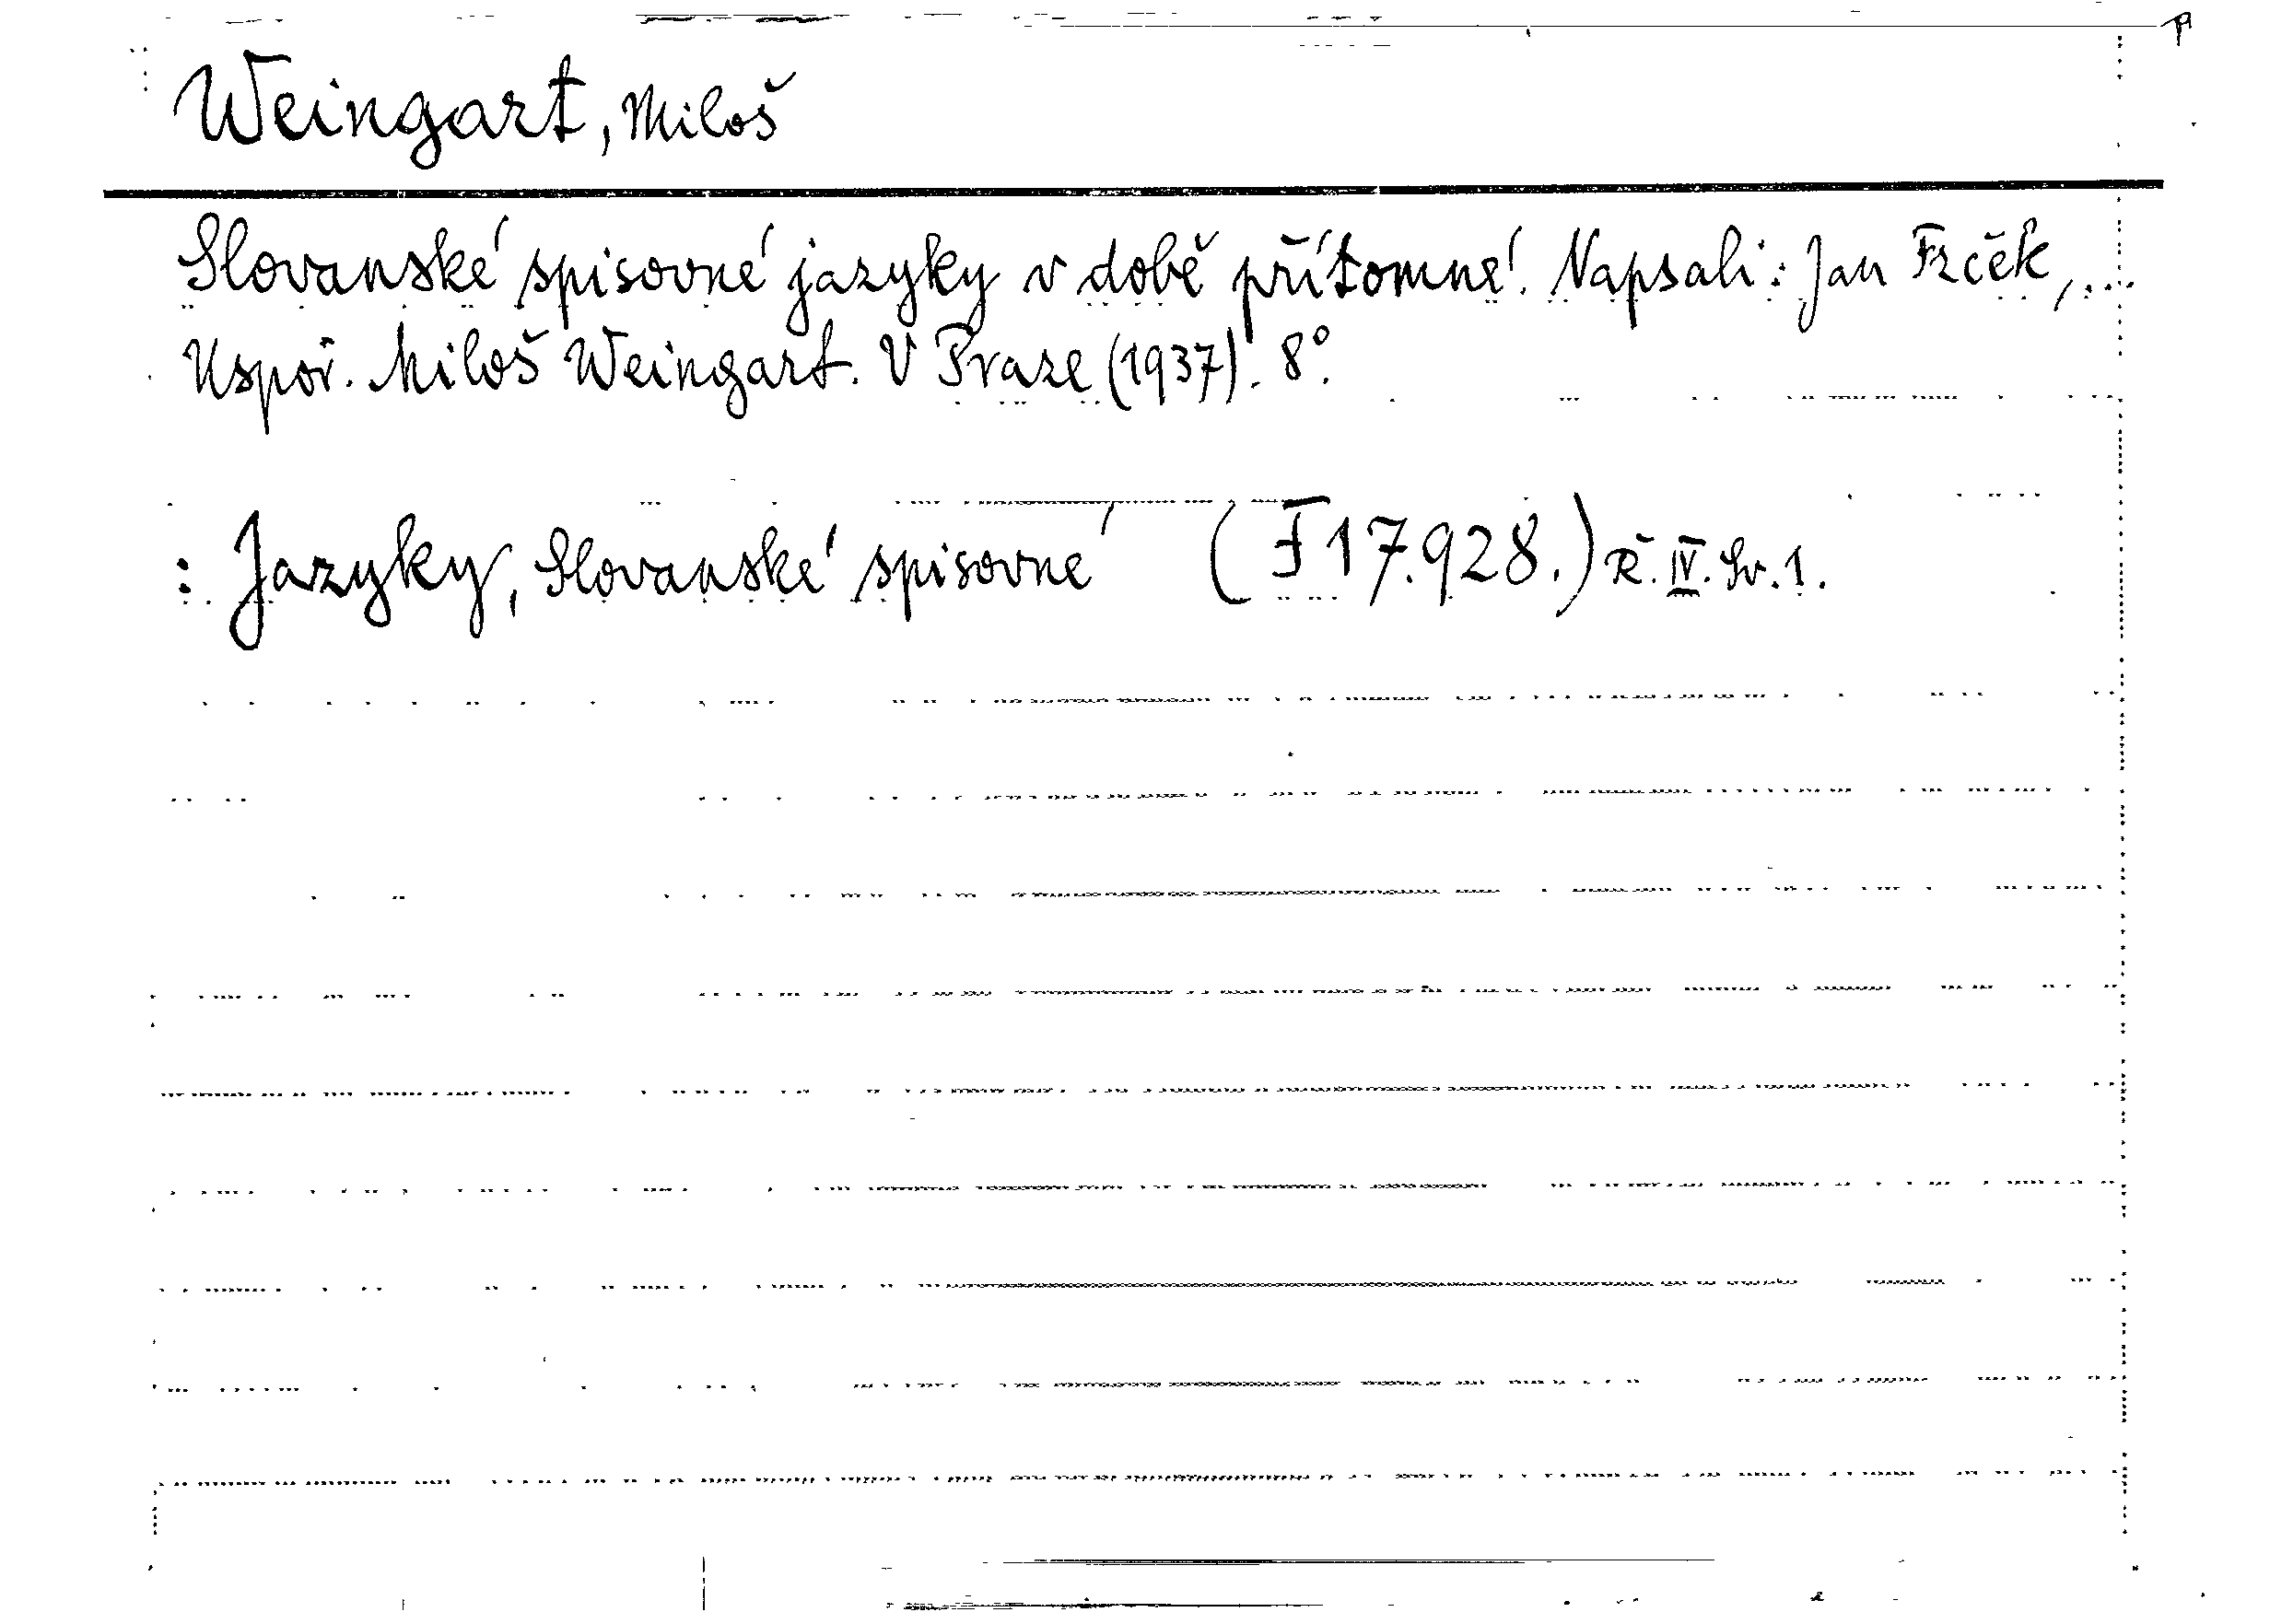 Weingart, Miloš
Slovanské spisovné jazyky v době přítomné. Napsali: Jan Frček, ...
Uspoř. Miloš Weingart. V Praze (1937). 8°.
: Jazyky, Slovanské spisovné (F 17.928.) Ř. IV. Sv. 1.